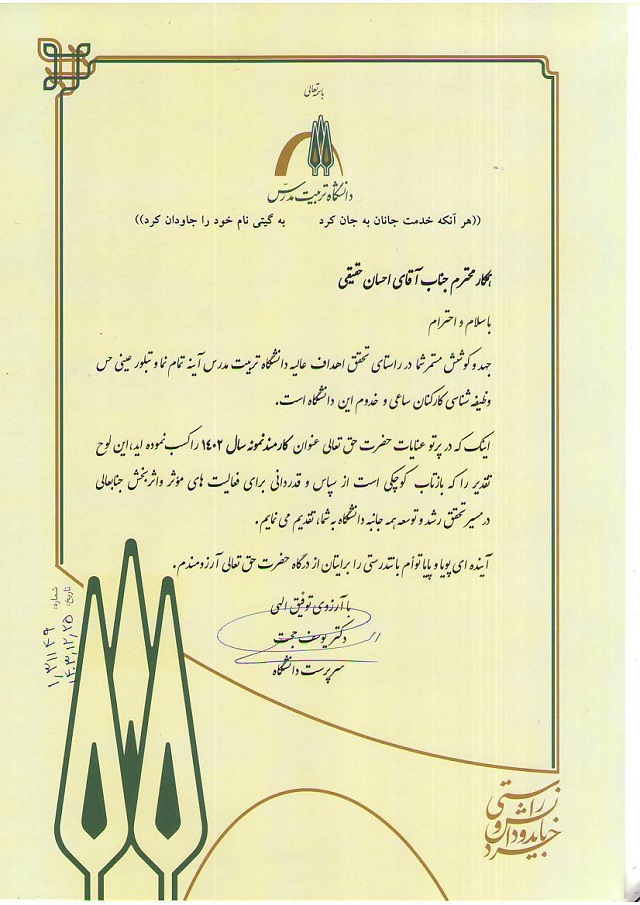 باسمه‌تعالی
دانشگاه تربیت مدرس
((هر آنکه خدمت جانان به جان کرد به گیتی نام خود را جاودان کرد))
همکار محترم جناب آقای احسان حقیقی
با سلام و احترام
جهد و کوشش مستمر شما در راستای تحقق اهداف عالیه دانشگاه تربیت مدرس آینه تمام نما و تبلور عینی حس
وظیفه شناسی کارکنان ساعی و خدوم این دانشگاه است.
اینک که در پرتو عنایات حضرت حق تعالی عنوان کارمند نمونه سال ۱۴۰۲ را کسب نموده اید، این لوح
تقدیر را که بازتاب کوچکی است از سپاس و قدردانی برای فعالیت های مؤثر و اثربخش جنابعالی
در مسیر تحقق رشد و توسعه همه جانبه دانشگاه به شما، تقدیم می نمایم.
آینده ای پویا و پایا توأم با تندرستی را برایتان از درگاه حضرت حق تعالی آرزومندم.
با آرزوی توفیق الهی
دکتر یوسف حجت
سرپرست دانشگاه
شماره: ۱/۳۱۱۴۹
تاریخ: ۱۴۰۳/۱۲/۲۵
ز راستی
خیزد